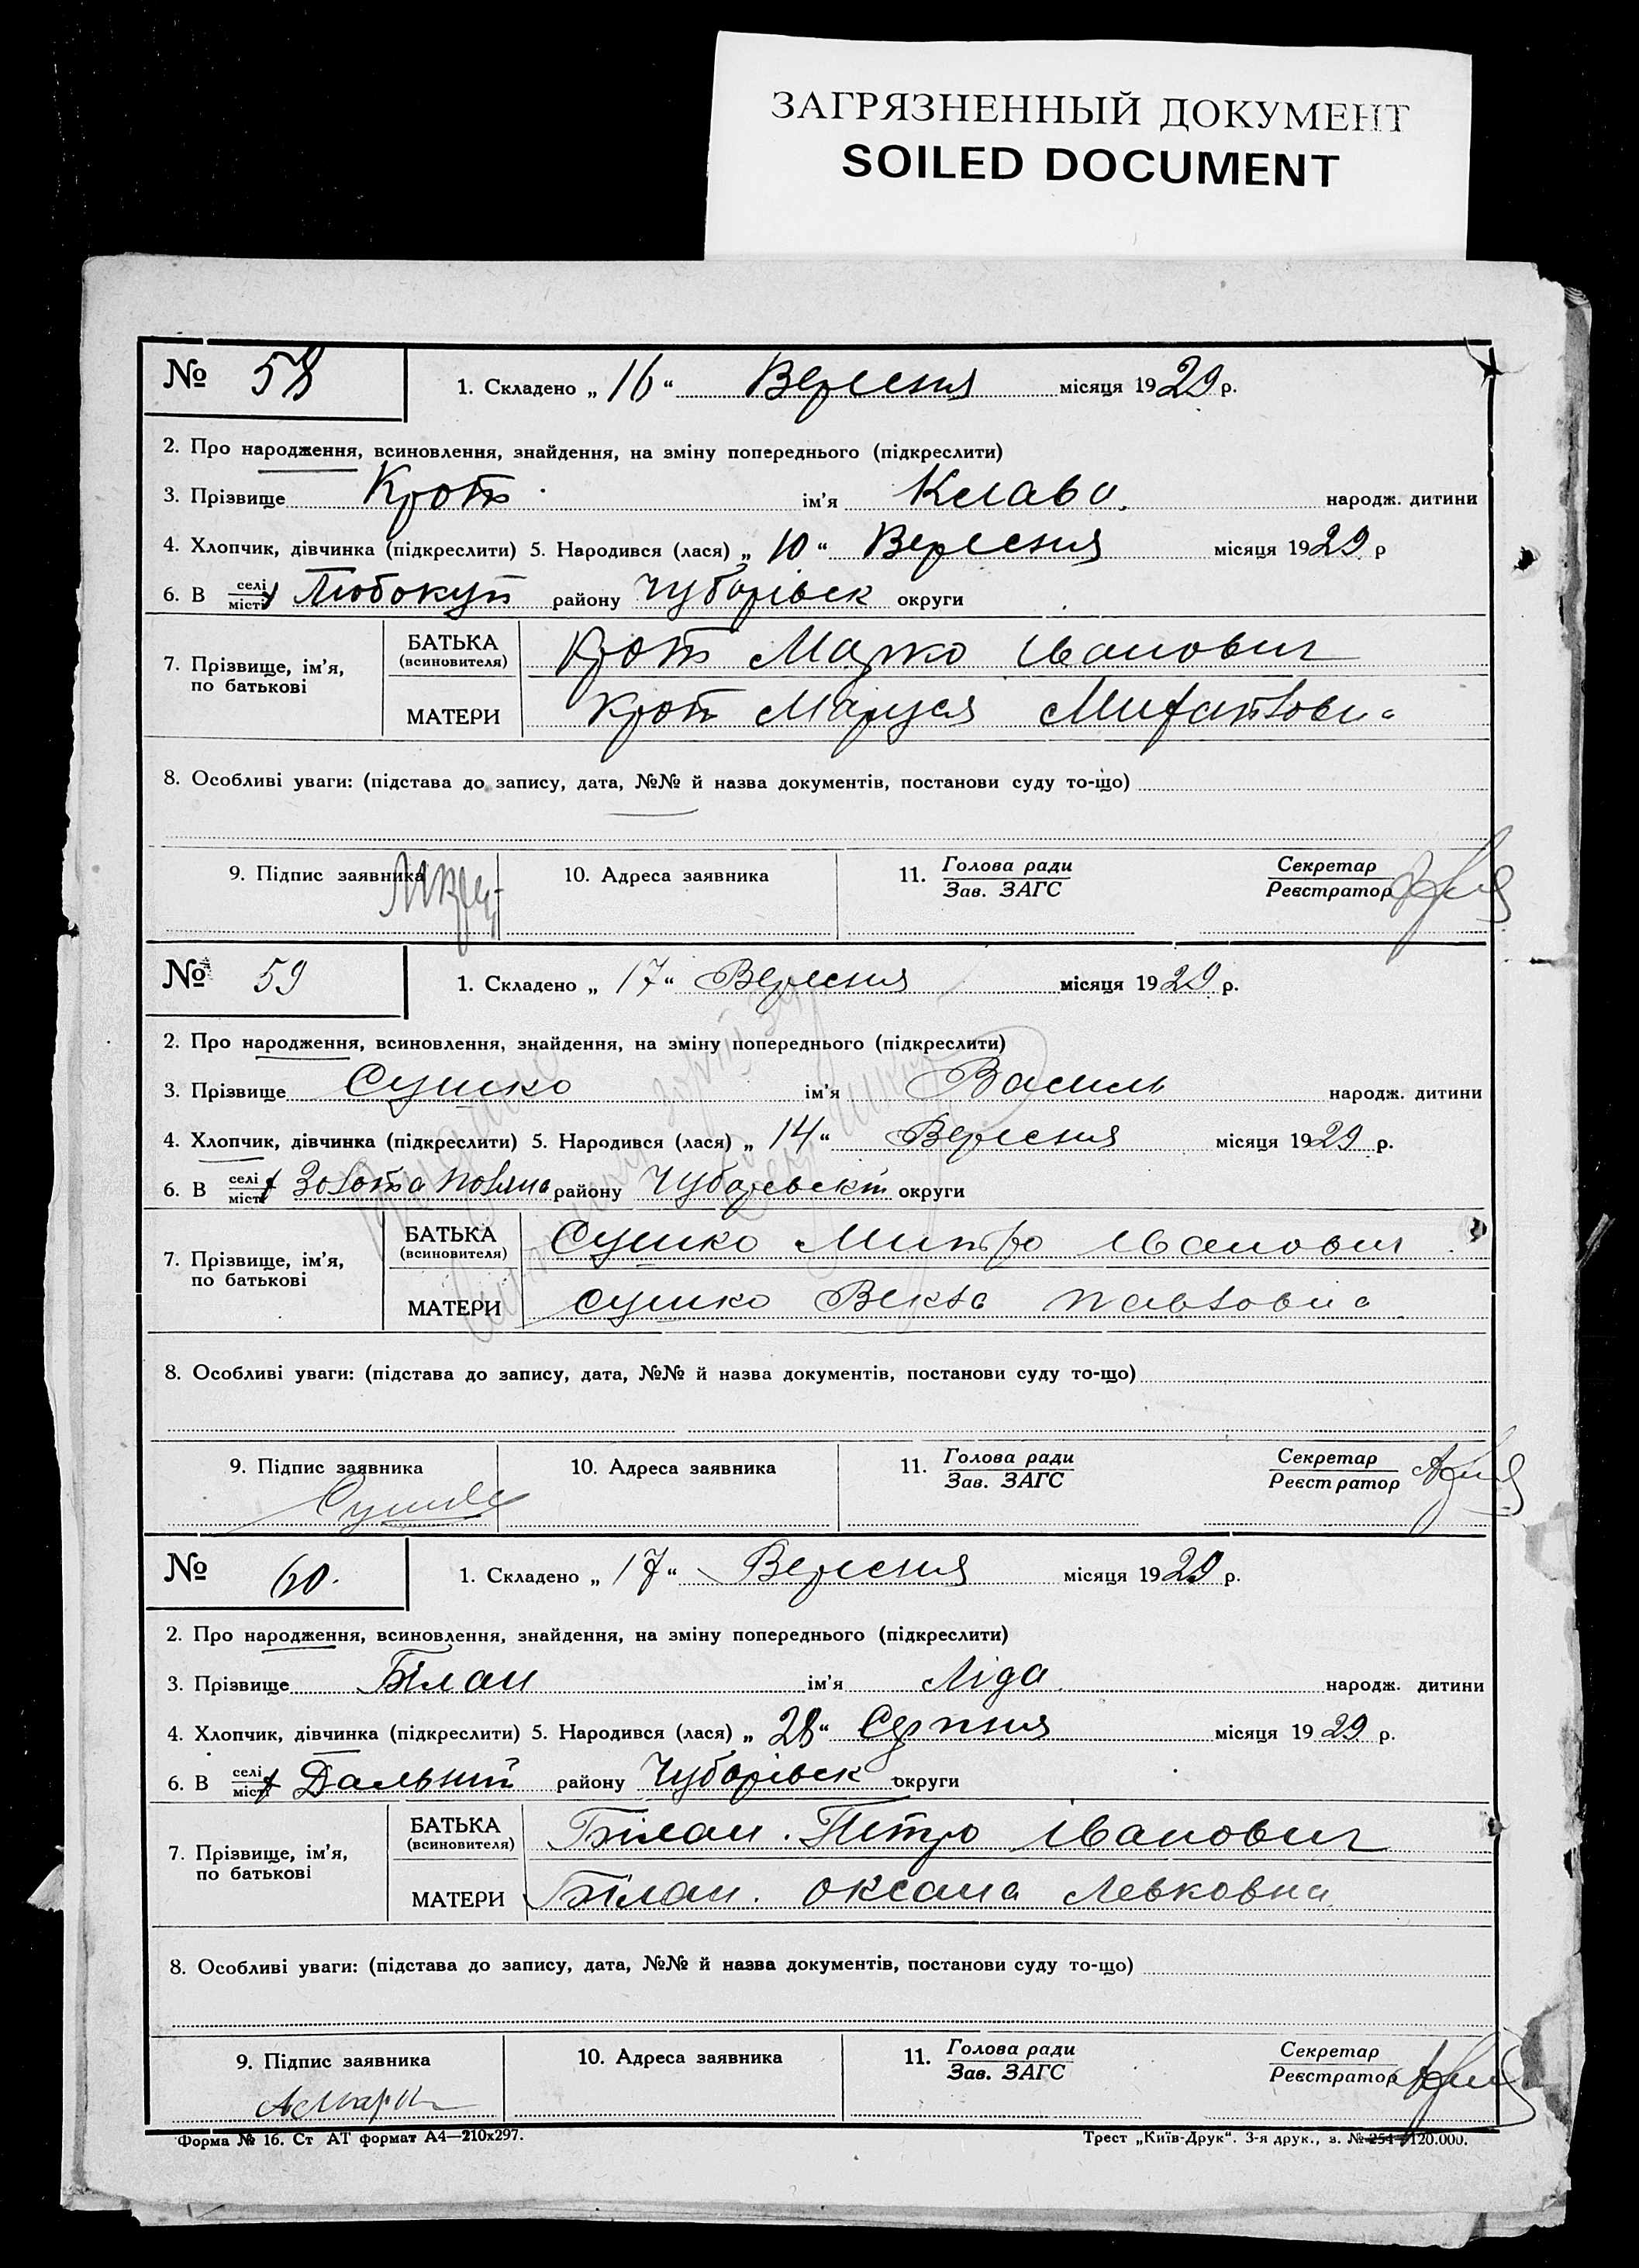 ЗАГРЯЗНЕННЫЙ ДОКУМЕНТ
SOILED DOCUMENT
№ 58 1. Складено „ 16 “ Вересня місяця 1929 р.
2. Про народження, всиновлення, знайдення, на зміну попереднього (підкреслити)
3. Прізвище Крот ім'я Клава народж. дитини
4. Хлопчик, дівчинка (підкреслити) 5. Народився (лася) „ 10 “ Вересня місяця 1929 р
6. В селі місті Любокут району Чубарівск округи
7. Прізвище, ім'я, по батькові БАТЬКА (всиновителя) Крот Марко Іванович
МАТЕРИ Крот Маруся
8. Особливі уваги: (підстава до запису, дата, №№ й назва документів, постанови суду то-що)
9. Підпис заявника 10. Адреса заявника 11. Голова ради Зав. ЗАГС Секретар Реєстратор
№ 59 1. Складено „ 17 “ Вересня місяця 1929 р.
2. Про народження, всиновлення, знайдення, на зміну попереднього (підкреслити)
3. Прізвище Сушко ім'я Василь народж. дитини
4. Хлопчик, дівчинка (підкреслити) 5. Народився (лася) „ 14 “ Вересня місяця 1929 р.
6. В селі місті Золота Поляна району округи
7. Прізвище, ім'я, по батькові БАТЬКА (всиновителя) Сушко Митро Іванович
МАТЕРИ Сушко Векла Павловна
8. Особливі уваги: (підстава до запису, дата, №№ й назва документів, постанови суду то-що)
9. Підпис заявника 10. Адреса заявника 11. Голова ради Зав. ЗАГС Секретар Реєстратор
Сушко
№ 60. 1. Складено „ 17 “ Вересня місяця 1929 р.
2. Про народження, всиновлення, знайдення, на зміну попереднього (підкреслити)
3. Прізвище Білан ім'я Ліда народж. дитини
4. Хлопчик, дівчинка (підкреслити) 5. Народився (лася) „ 28 “ Серпня місяця 1929 р.
6. В селі місті Дальний району Чубарівск округи
7. Прізвище, ім'я, по батькові БАТЬКА (всиновителя) Білан. Петро Іванович
МАТЕРИ Білан. Оксана Левковна
8. Особливі уваги: (підстава до запису, дата, №№ й назва документів, постанови суду то-що)
9. Підпис заявника 10. Адреса заявника 11. Голова ради Зав. ЗАГС Секретар Реєстратор
Форма № 16. Ст АТ формат А4—210x297. Трест „Київ-Друк“. 3-я друк., з. № 254—120.000.